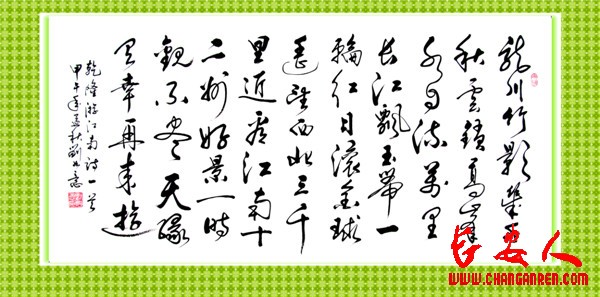 龍川竹影幾千
秋雲鎖高峰
水自流萬里
長江飄玉帶一
輪紅日滾金球
遥望西北三千
里近看江南十
二州好景一時
觀不盡天緣
有幸再來遊
乾隆游江南诗一首
甲午年孟秋劉
长安人
WWW.CHANGANREN.COM